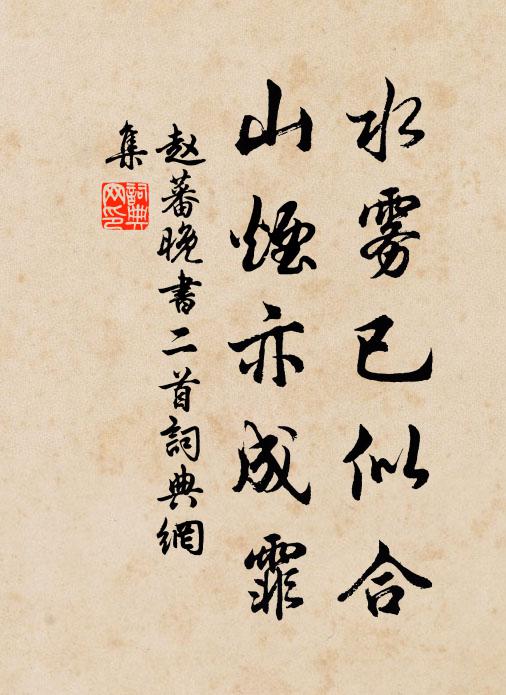 水雾已似合
山煙亦成霏
赵蕃晚書二首詞典網
集
詞典
网印